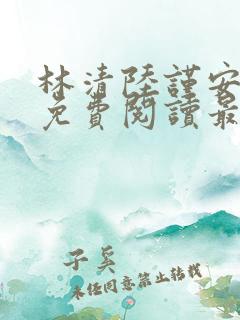 林清陸謹安
免費閱讀最
子奚
未經同意禁止轉載